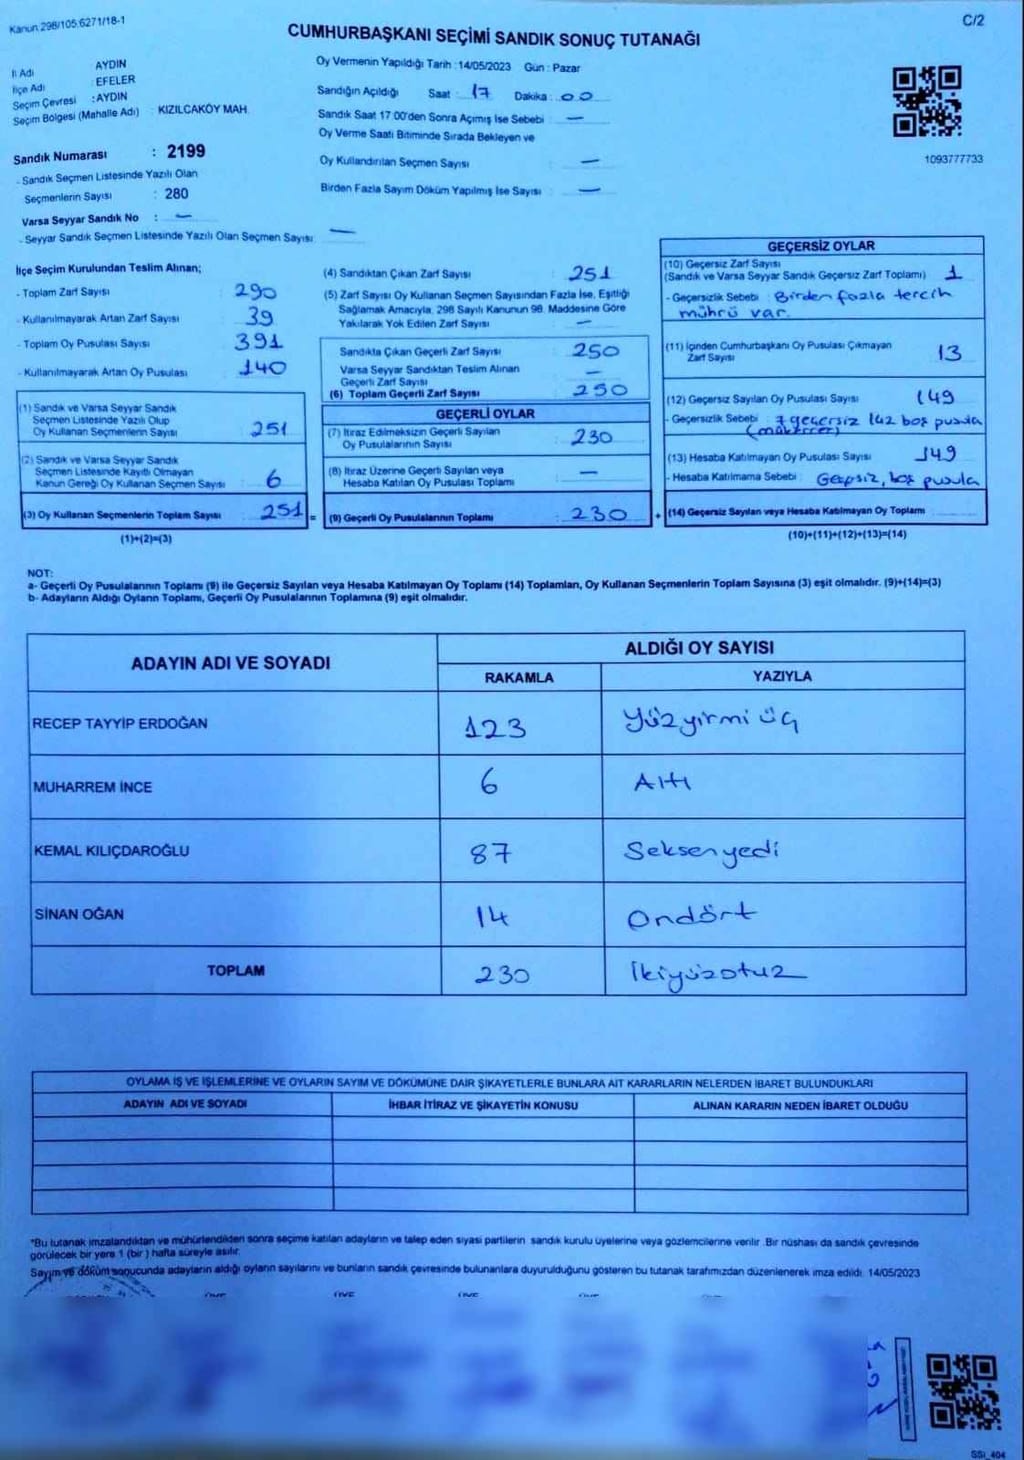 Kanun 298/105:6271/18-1
C/2
CUMHURBAŞKANI SEÇİMİ SANDIK SONUÇ TUTANAĞI
İl Adı AYDIN
İlçe Adı : EFELER
Seçim Çevresi : AYDIN
Seçim Bölgesi (Mahalle Adı) : KIZILCAKÖY MAH.
Sandık Numarası : 2199
- Sandık Seçmen Listesinde Yazılı Olan
Seçmenlerin Sayısı : 280
Varsa Seyyar Sandık No : —
- Seyyar Sandık Seçmen Listesinde Yazılı Olan Seçmen Sayısı: —
Oy Vermenin Yapıldığı Tarih : 14/05/2023 Gün : Pazar
Sandığın Açıldığı Saat : 17 Dakika : 00
Sandık Saat 17:00'den Sonra Açımış İse Sebebi : —
Oy Verme Saati Bitiminde Sırada Bekleyen ve
Oy Kullandırılan Seçmen Sayısı : —
Birden Fazla Sayım Döküm Yapılmış İse Sayısı : —
1093777733
İlçe Seçim Kurulundan Teslim Alınan;
- Toplam Zarf Sayısı : 290
- Kullanılmayarak Artan Zarf Sayısı : 39
- Toplam Oy Pusulası Sayısı : 391
- Kullanılmayarak Artan Oy Pusulası : 140
(1) Sandık ve Varsa Seyyar Sandık
Seçmen Listesinde Yazılı Olup
Oy Kullanan Seçmenlerin Sayısı : 251
(2) Sandık ve Varsa Seyyar Sandık
Seçmen Listesinde Kayıtlı Olmayan
Kanun Gereği Oy Kullanan Seçmen Sayısı : 6
(3) Oy Kullanan Seçmenlerin Toplam Sayısı : 251 =
(1)+(2)=(3)
(4) Sandıktan Çıkan Zarf Sayısı : 251
(5) Zarf Sayısı Oy Kullanan Seçmen Sayısından Fazla İse, Eşitliği
Sağlamak Amacıyla, 298 Sayılı Kanunun 98. Maddesine Göre
Yakılarak Yok Edilen Zarf Sayısı : —
Sandıkta Çıkan Geçerli Zarf Sayısı : 250
Varsa Seyyar Sandıktan Teslim Alınan
Geçerli Zarf Sayısı : —
(6) Toplam Geçerli Zarf Sayısı : 250
GEÇERLİ OYLAR
(7) İtiraz Edilmeksizin Geçerli Sayılan
Oy Pusulalarının Sayısı : 230
(8) İtiraz Üzerine Geçerli Sayılan veya
Hesaba Katılan Oy Pusulası Toplamı : —
(9) Geçerli Oy Pusulalarının Toplamı : 230 +
GEÇERSİZ OYLAR
(10) Geçersiz Zarf Sayısı
(Sandık ve Varsa Seyyar Sandık Geçersiz Zarf Toplamı) : 1
- Geçersizlik Sebebi : Birden fazla tercih
mührü var.
(11) İçinden Cumhurbaşkanı Oy Pusulası Çıkmayan
Zarf Sayısı : 13
(12) Geçersiz Sayılan Oy Pusulası Sayısı : 149
- Geçersizlik Sebebi : 7 geçersiz 142 boş pusula
(mükerrer)
(13) Hesaba Katılmayan Oy Pusulası Sayısı : 149
- Hesaba Katılmama Sebebi : boş pusula
(14) Geçersiz Sayılan veya Hesaba Katılmayan Oy Toplamı :
(10)+(11)+(12)+(13)=(14)
NOT:
a- Geçerli Oy Pusulalarının Toplamı (9) ile Geçersiz Sayılan veya Hesaba Katılmayan Oy Toplamı (14) Toplamları, Oy Kullanan Seçmenlerin Toplam Sayısına (3) eşit olmalıdır. (9)+(14)=(3)
b- Adayların Aldığı Oyların Toplamı, Geçerli Oy Pusulalarının Toplamına (9) eşit olmalıdır.
ADAYIN ADI VE SOYADI
ALDIĞI OY SAYISI
RAKAMLA YAZIYLA
RECEP TAYYİP ERDOĞAN 123 Yüzyirmi üç
MUHARREM İNCE 6 Altı
KEMAL KILIÇDAROĞLU 87 Seksenyedi
SİNAN OĞAN 14 Ondört
TOPLAM 230 İkiyüzotuz
OYLAMA İŞ VE İŞLEMLERİNE VE OYLARIN SAYIM VE DÖKÜMÜNE DAİR ŞİKAYETLERLE BUNLARA AİT KARARLARIN NELERDEN İBARET BULUNDUKLARI
ADAYIN ADI VE SOYADI İHBAR İTİRAZ VE ŞİKAYETİN KONUSU ALINAN KARARIN NEDEN İBARET OLDUĞU
*Bu tutanak imzalandıktan ve mühürlendikten sonra seçime katılan adayların ve talep eden siyasi partilerin sandık kurulu üyelerine veya gözlemcilerine verilir. Bir nüshası da sandık çevresinde
görülecek bir yere 1 (bir) hafta süreyle asılır.
Sayım ve döküm sonucunda adayların aldığı oyların sayılarını ve bunların sandık çevresinde bulunanlara duyurulduğunu gösteren bu tutanak tarafımızdan düzenlenerek imza edildi. 14/05/2023
SSI_404